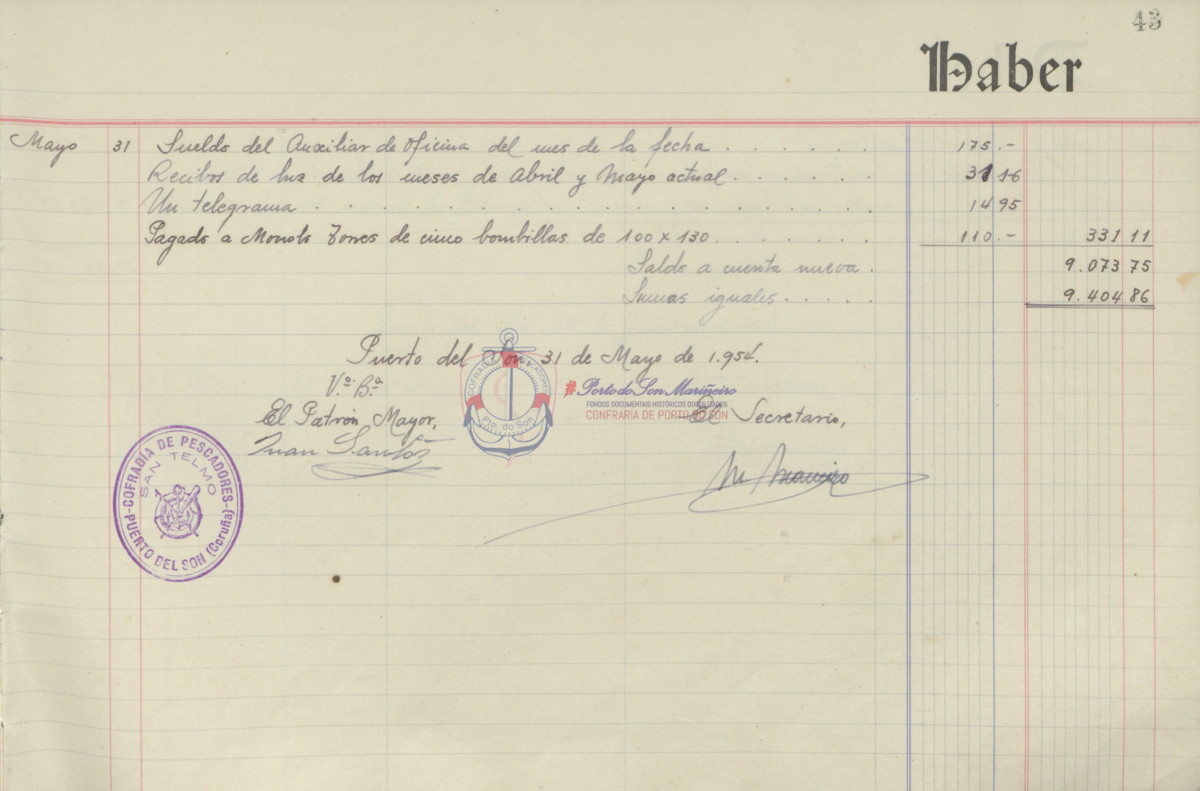 43
Haber
Mayo 31 Sueldo del Auxiliar de Oficina del mes de la fecha . . . . . . 175.-
Recibos de luz de los meses de Abril y Mayo actual . . . . . . 31 16
Un telegrama . . . . . . . . . . . . . . . . 14 95
Pagado a Monolo Torres de cinco bombillas de 100 x 130 . . . . . . 110.- 331 11
Saldo a cuenta nueva . 9.073 75
Sumas iguales . . . . . 9.404 86
Puerto del Son, 31 de Mayo de 1.954.
Vº. Bº.
El Patrón Mayor, El Secretario,
Juan Santos
COFRADÍA DE PESCADORES
SAN TELMO
PUERTO DEL SON (Coruña)
Pto. do Son
#Porto do Son Mariñeiro
FONDOS DOCUMENTAIS HISTÓRICOS DIXITALIZADOS
CONFRARÍA DE PORTO DO SON